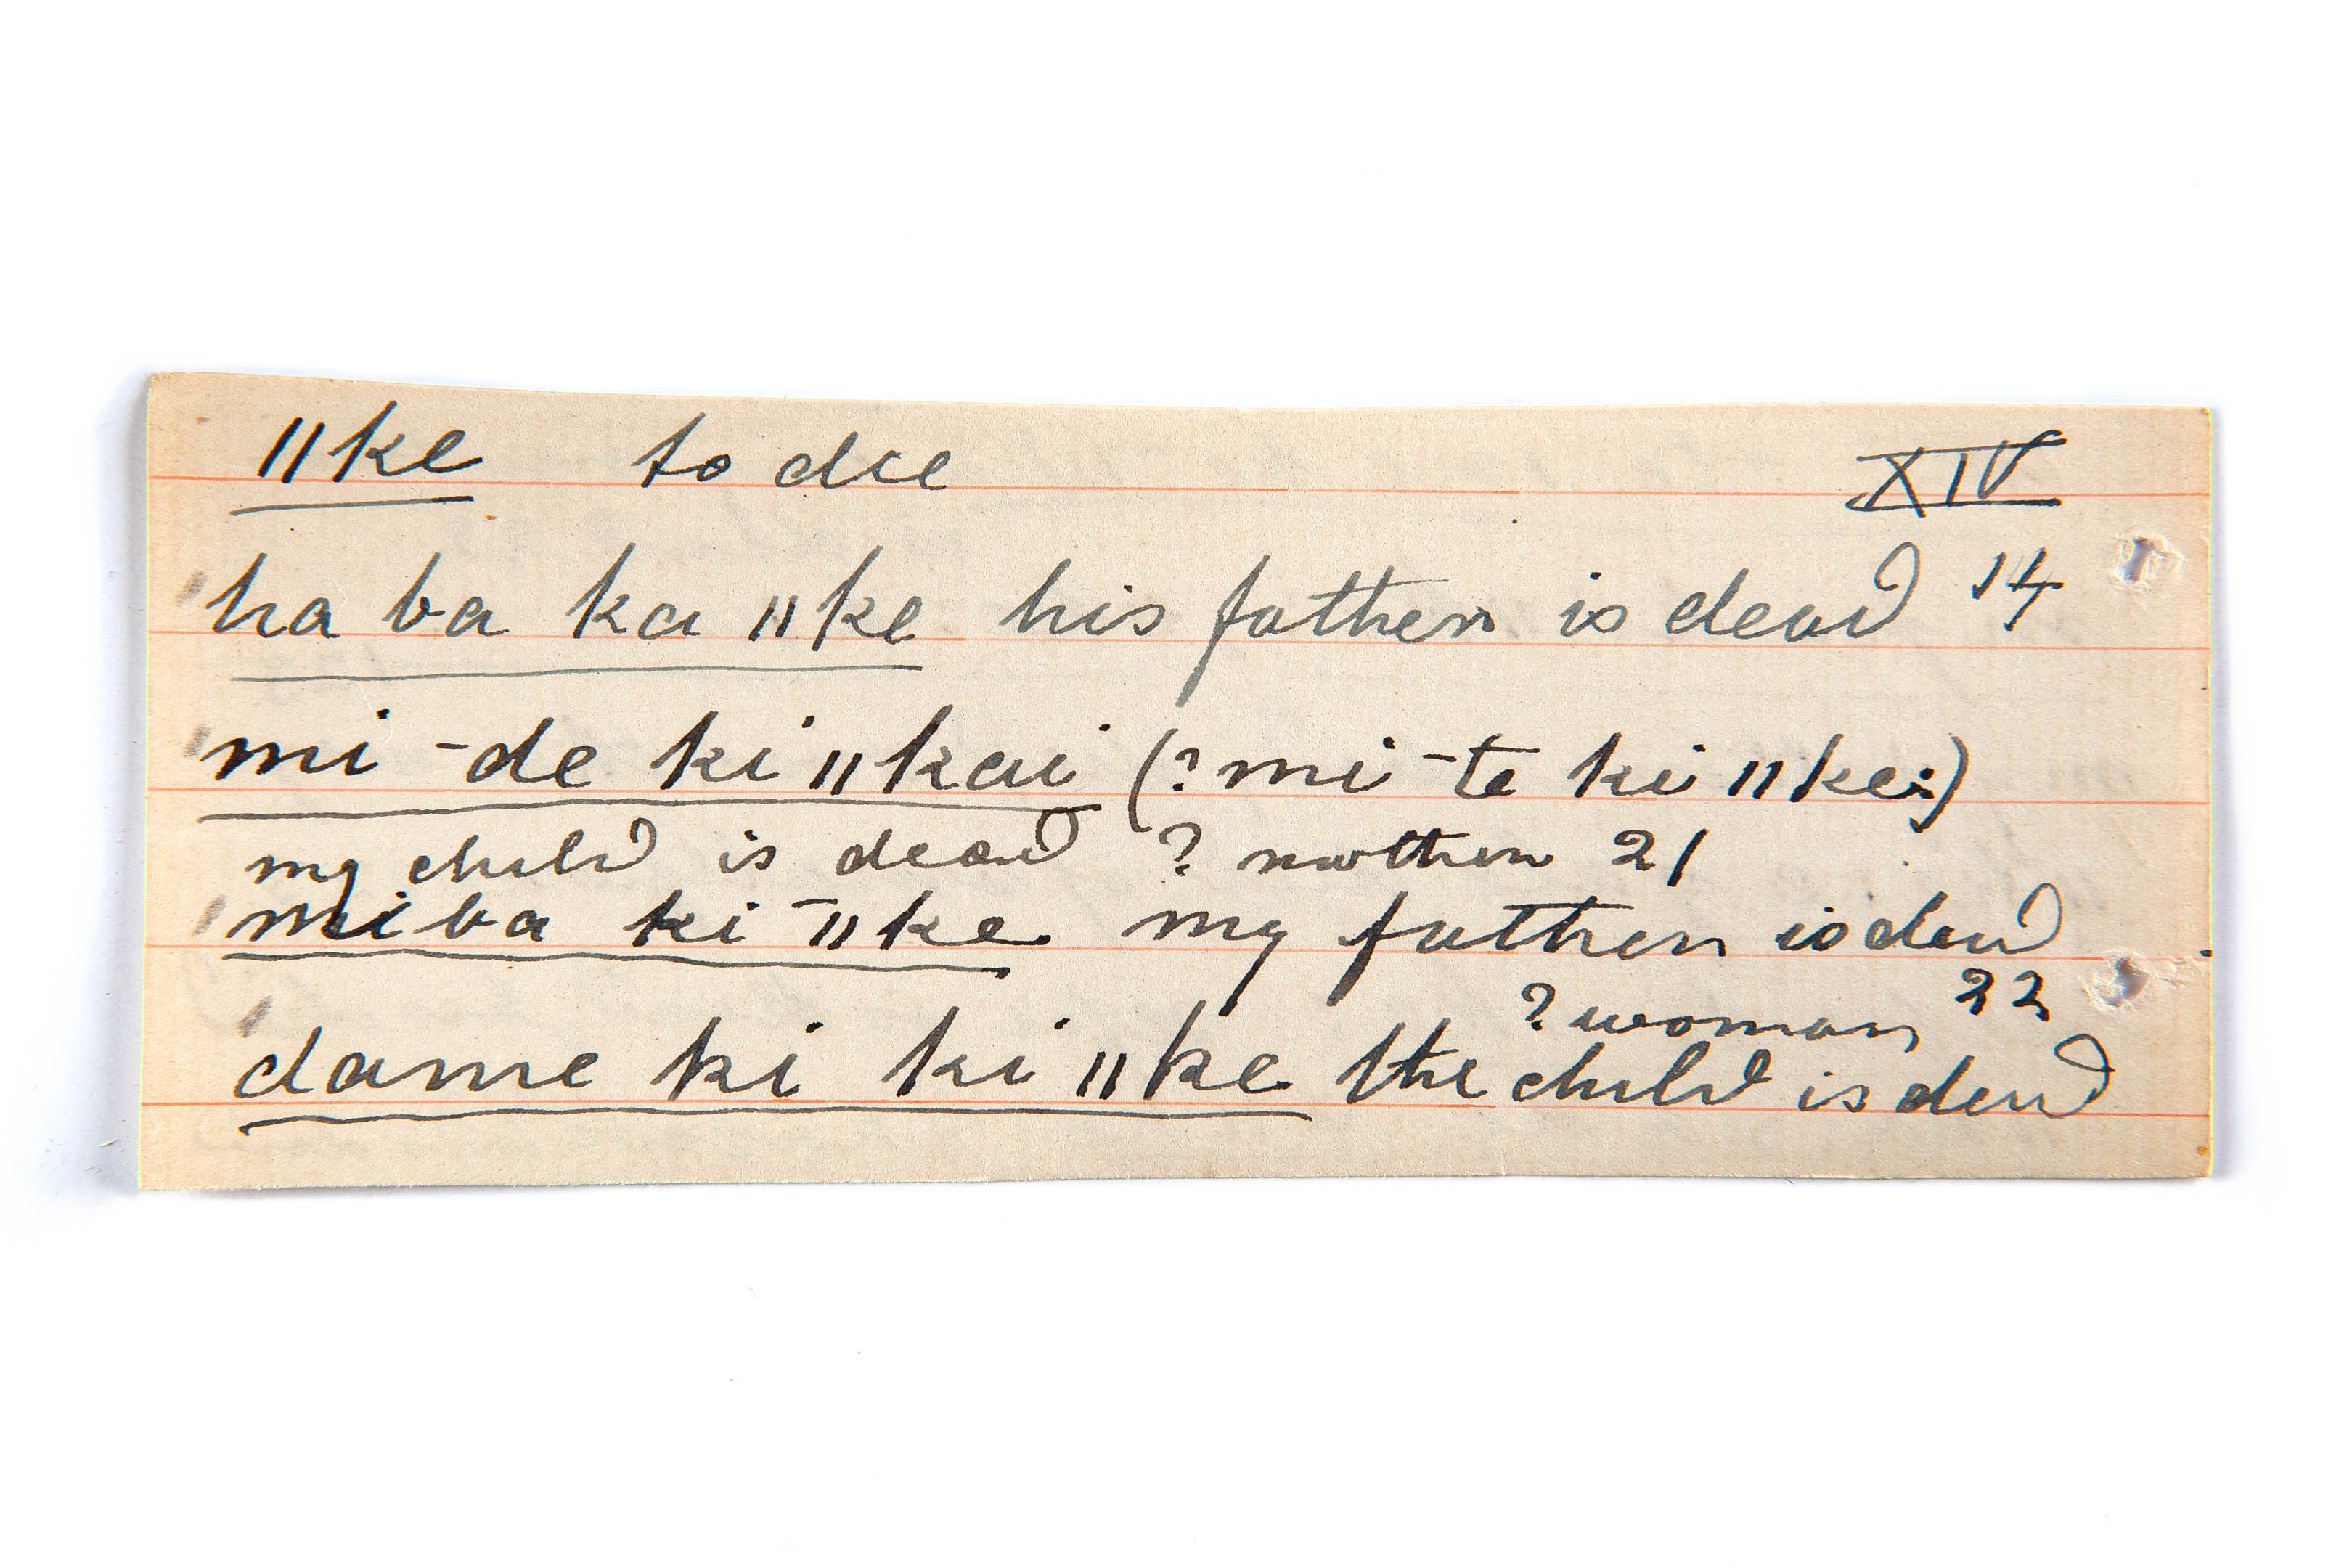 ǁke to die XIV
ha ba ka ǁke his father is dead 14
mi -de ki ǁkai (? mi -te ki ǁke:)
my child is dead ? mother 21
mi ba ki -ǁke my father is dead
? woman 22
dame ki ki ǁke the child is dead